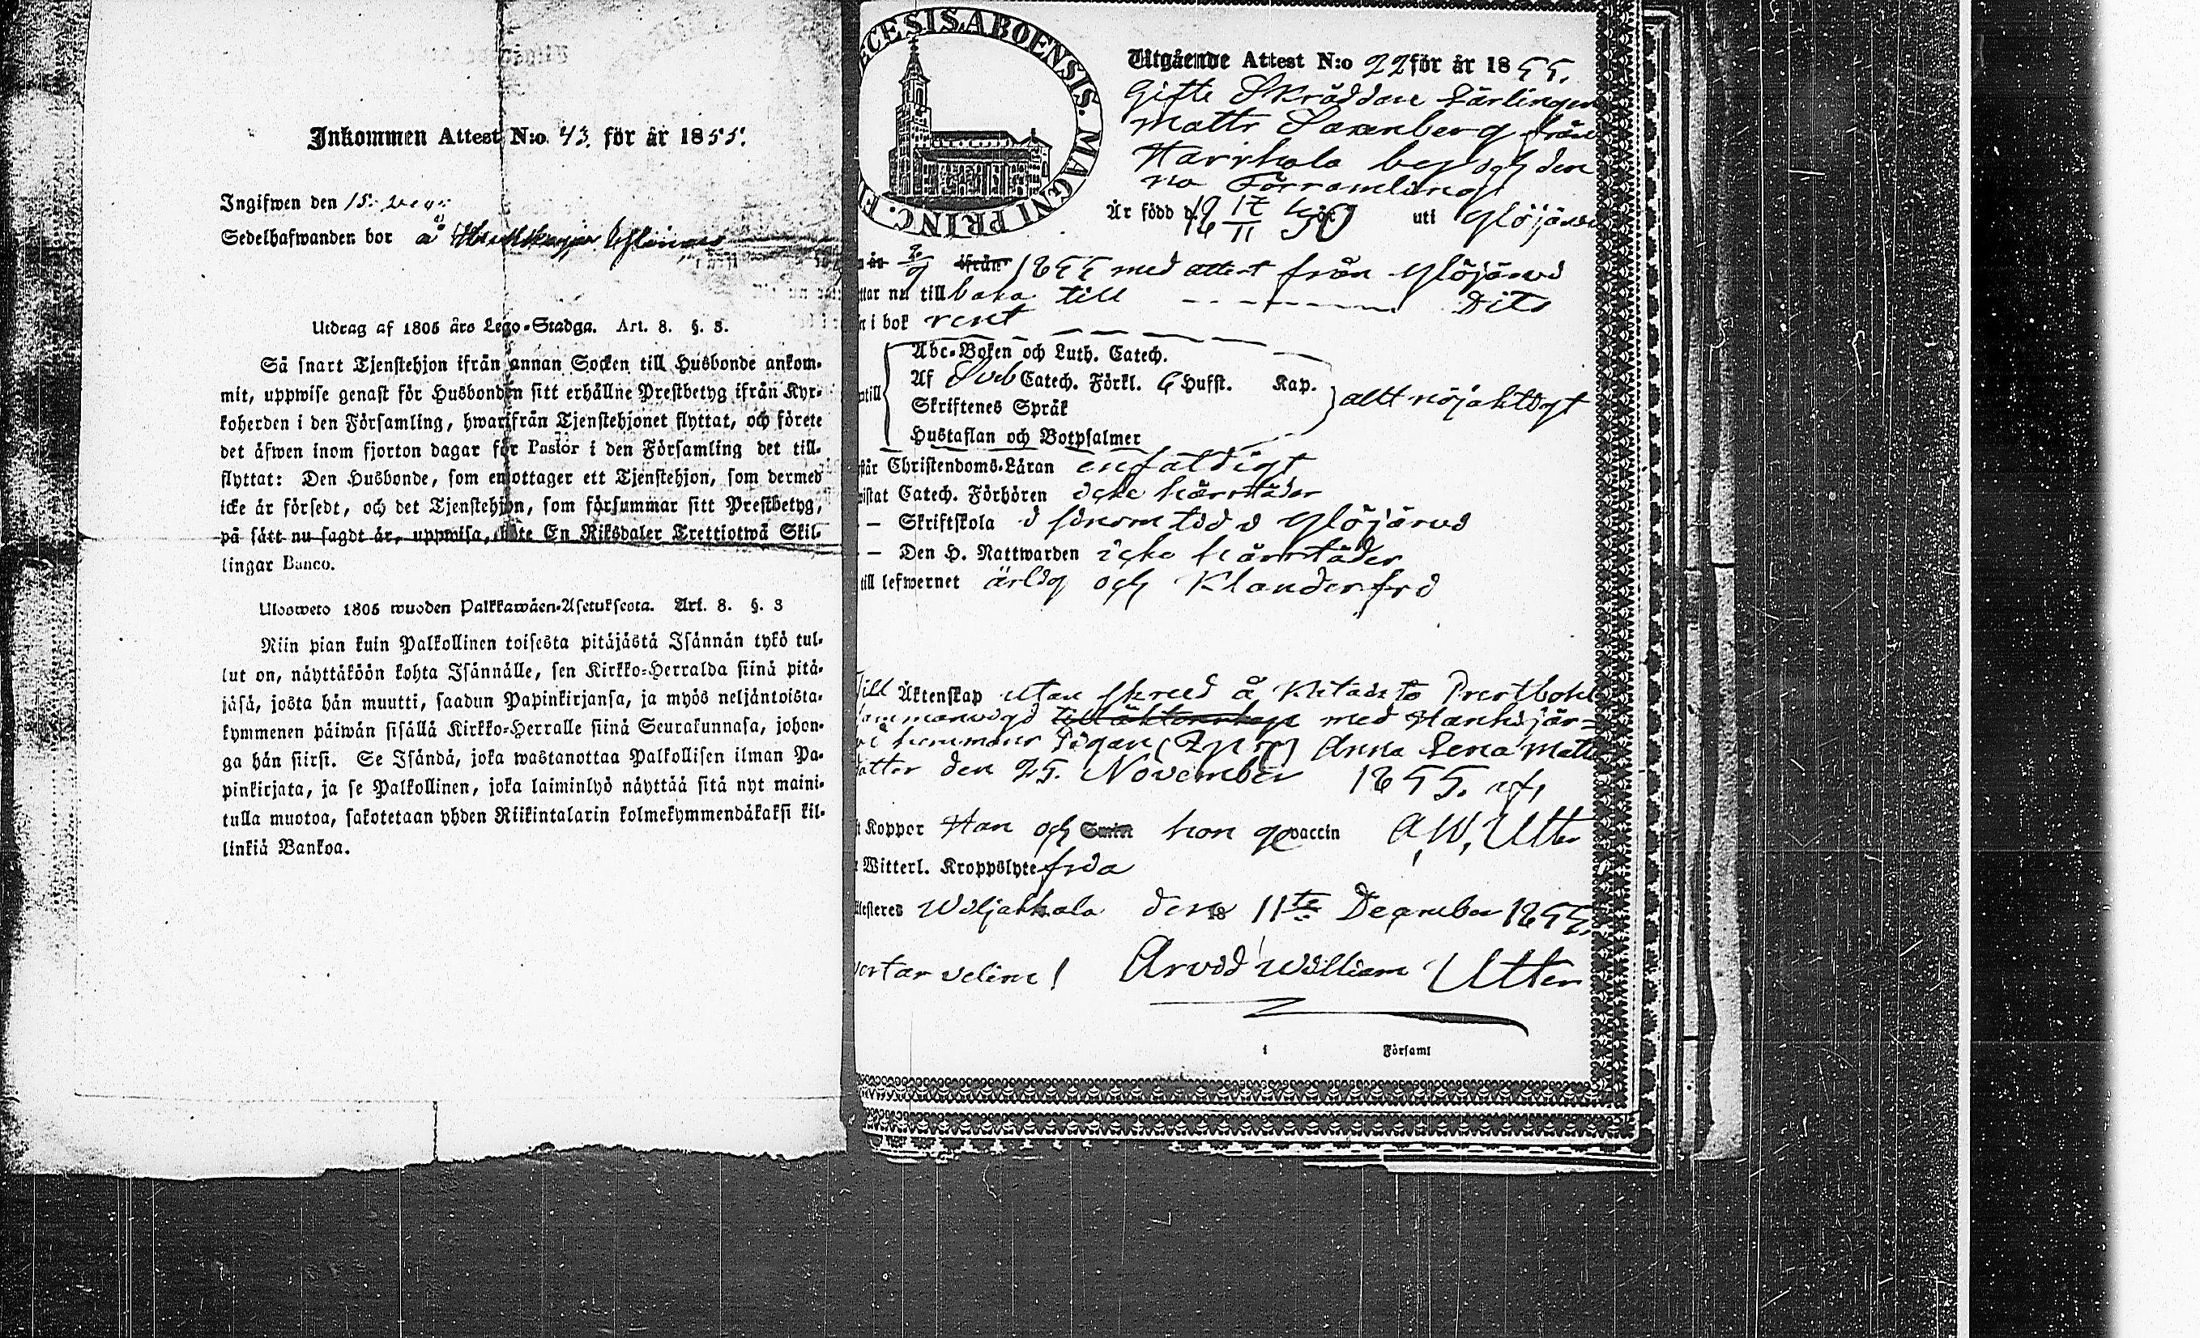 Inkommen Attest N:o 43. för år 1855.
Ingifwen den 15.
Sedelhafwanden bor å
Utdrag af 1805 års Lego-Stadga. Art. 8. §. 3.
Så snart Tjenstehjon ifrån annan Socken till Husbonde ankom-
mit, uppwise genast för Husbonden sitt erhållne Prestbetyg ifrån Kyr-
koherden i den Församling, hwarifrån Tjenstehjonet flyttat, och förete
det äfwen inom fjorton dagar för Pastor i den Församling det till-
flyttat: Den Husbonde, som emottager ett Tjenstehjon, som dermed
icke är försedt, och det Tjenstehjon, som försummar sitt Prestbetyg,
på sätt nu sagdt är, uppwisa, böte En Riksdaler Trettiotwå Skil-
lingar Banco.
Ulosweto 1805 wuoden Palkkawäen-Asetuksesta. Art. 8. §. 3
Niin pian kuin Palkollinen toisesta pitäjästä Isännän tykö tul-
lut on, näyttäköön kohta Isännälle, sen Kirkko-Herralda siinä pitä-
jäsä, josta hän muutti, saadun Papinkirjansa, ja myös neljäntoista-
kymmenen päiwän sisällä Kirkko-Herralle siinä Seurakunnasa, johon-
ga hän siirsi. Se Isändä, joka wastanottaa Palkollisen ilman Pa-
pinkirjata, ja se Palkollinen, joka laiminlyö näyttää sitä nyt maini-
tulla muotoa, sakotetaan yhden Riikintalarin kolmekymmendäkaksi kil-
linkiä Bankoa.
ECESIS. ABOENSIS. MAGNI PRINC. F
Utgående Attest N:o 22 för år 1855.
Gifte Skräddare Lärlingen
Matts Saxenberg från
Harhala by och den
na Församling
Är född d. 19 17/11 30 uti Ylöjärvi
ifrån 1855 med attest från Ylöjärvi
ttar nu tillbaka till Dito
n i bok rent
Abc-Boken och Luth. Catech.
Af Sveb Catech. Förkl. Husst. Kap.
ntill
Skriftenes Språk
allt nöjaktigt
Hustaflan och Botpsalmer
står Christendoms-Läran enfaldigt
wistat Catech. Förhören icke härstädes
— Skriftskola i sinom tid i Ylöjärvi
— Den H. Nattwarden icke härstädes
till lefwernet ärlig och Klanderfri
Till Äktenskap utan skred å Prestbohl
sammanvigd till äktenskap med Hankijär=
vi hemmans Pigan Anna Lena Matts
dotter den 25. November 1855. af,
t Koppor Han och Smit hon ge vaccin A. W. Utter
Witterl. Kroppslyte fria
esteres Wiljakkala den 18 11te December 1855.
vertas velim! Arvid William Utter
i Församl